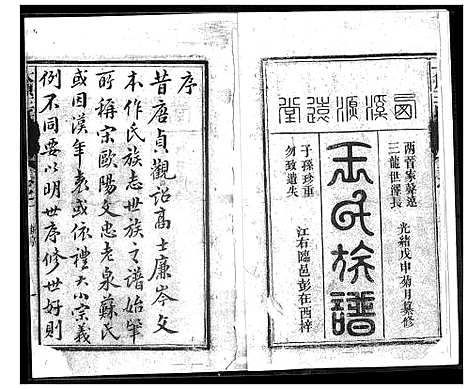 西溪源遠堂
两晋家聲遠
三龍世澤長
光緒戊申菊月纂修
玉氏族譜
子孫珍重
勿致遺失
江右臨邑彭在西梓
序
昔唐貞觀詔高士廉岑文
本作氏族志世族之譜始犖
所稱宋歐陽文忠老泉蘇氏
或因漢年表或依禮大小宗義
例不同要以明世序修世好則